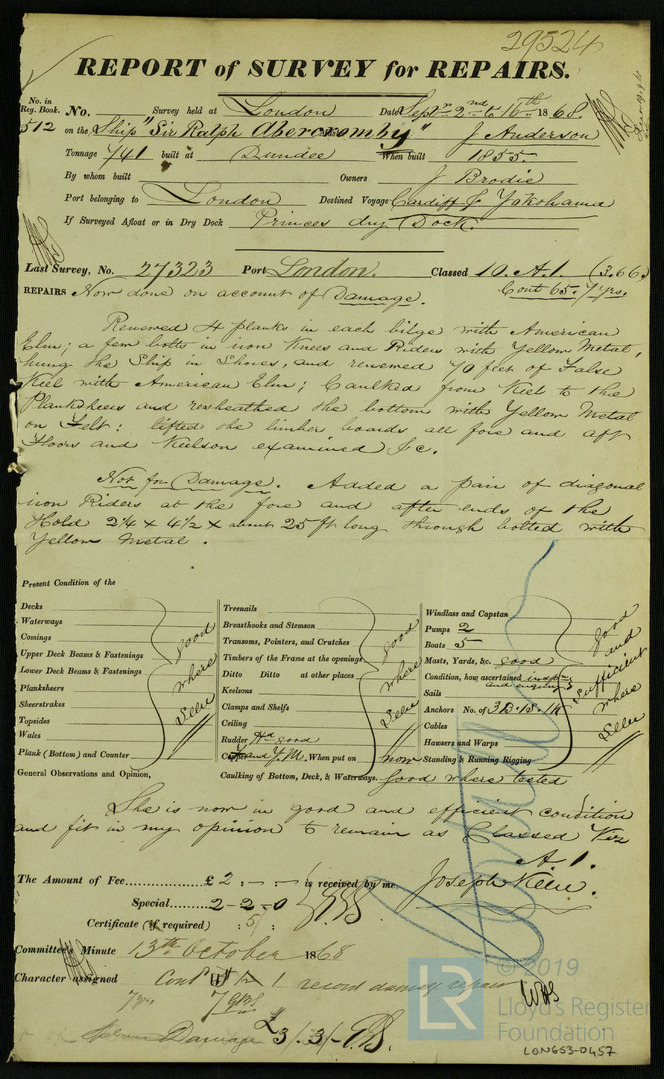 29524
REPORT of SURVEY for REPAIRS.
No. in Reg. Book. No. Survey held at London Date Septr 2nd to 16th 1868.
512 on the Ship "Sir Ralph Abercromby" J Anderson
Tonnage 741 built at Dundee When built 1855.
By whom built Owners J Brodie
Port belonging to London Destined Voyage Cardiff & Yokohama
If Surveyed Afloat or in Dry Dock Princes dry Dock.
Last Survey, No. 27323 Port London. Classed 10. A.1. (3.66)
REPAIRS Now done on account of Damage. Cont 65. 7 yrs.
Renewed 4 planks in each bilge with American
Elm; a few bolts in iron Knees and Riders with Yellow Metal,
hung the Ship in Shores, and renewed 70 feet of False
Keel with American Elm; Caulked from Keel to the
Planksheers and resheathed the bottom with Yellow Metal
on Felt: lifted the limber boards all fore and aft
Floors and Keelson examined &c.
Not for Damage. Added a pair of diagonal
iron Riders at the fore and after ends of the
Hold 2¼ x 4½ x about 25 ft long through bolted with
Yellow Metal.
Present Condition of the
Decks
Waterways
Comings
Upper Deck Beams & Fastenings
Lower Deck Beams & Fastenings
Planksheers
Sheerstrakes
Topsides
Wales
Plank (Bottom) and Counter
good where seen
Treenails
Breasthooks and Stemson
Transoms, Pointers, and Crutches
Timbers of the Frame at the openings
Ditto Ditto at other places
Keelsons
Clamps and Shelfs
Ceiling
Rudder good
and Y.M. When put on now
good where seen
Windlass and Capstan
Pumps 2
Boats 5
Masts, Yards, &c. good
Condition, how ascertained inspn and enquiry
Sails
Anchors No. of 3B. 1S. 1K
Cables
Hawsers and Warps
Standing & Running Rigging
good and sufficient where seen
General Observations and Opinion, Caulking of Bottom, Deck, & Waterways. good where tested
She is now in good and efficient condition
and fit in my opinion to remain as Classed Viz
A 1.
The Amount of Fee £ 2 : - : - is received by me, Joseph Keen.
Special 2-2-0
Certificate (if required) : 5 :
Committee's Minute 13th October 1868
Character assigned Cont A 1 record damage repair
7 yrs
Damage £3/3/-
© 2019
LR
Lloyd's Register
Foundation
LON653-0457